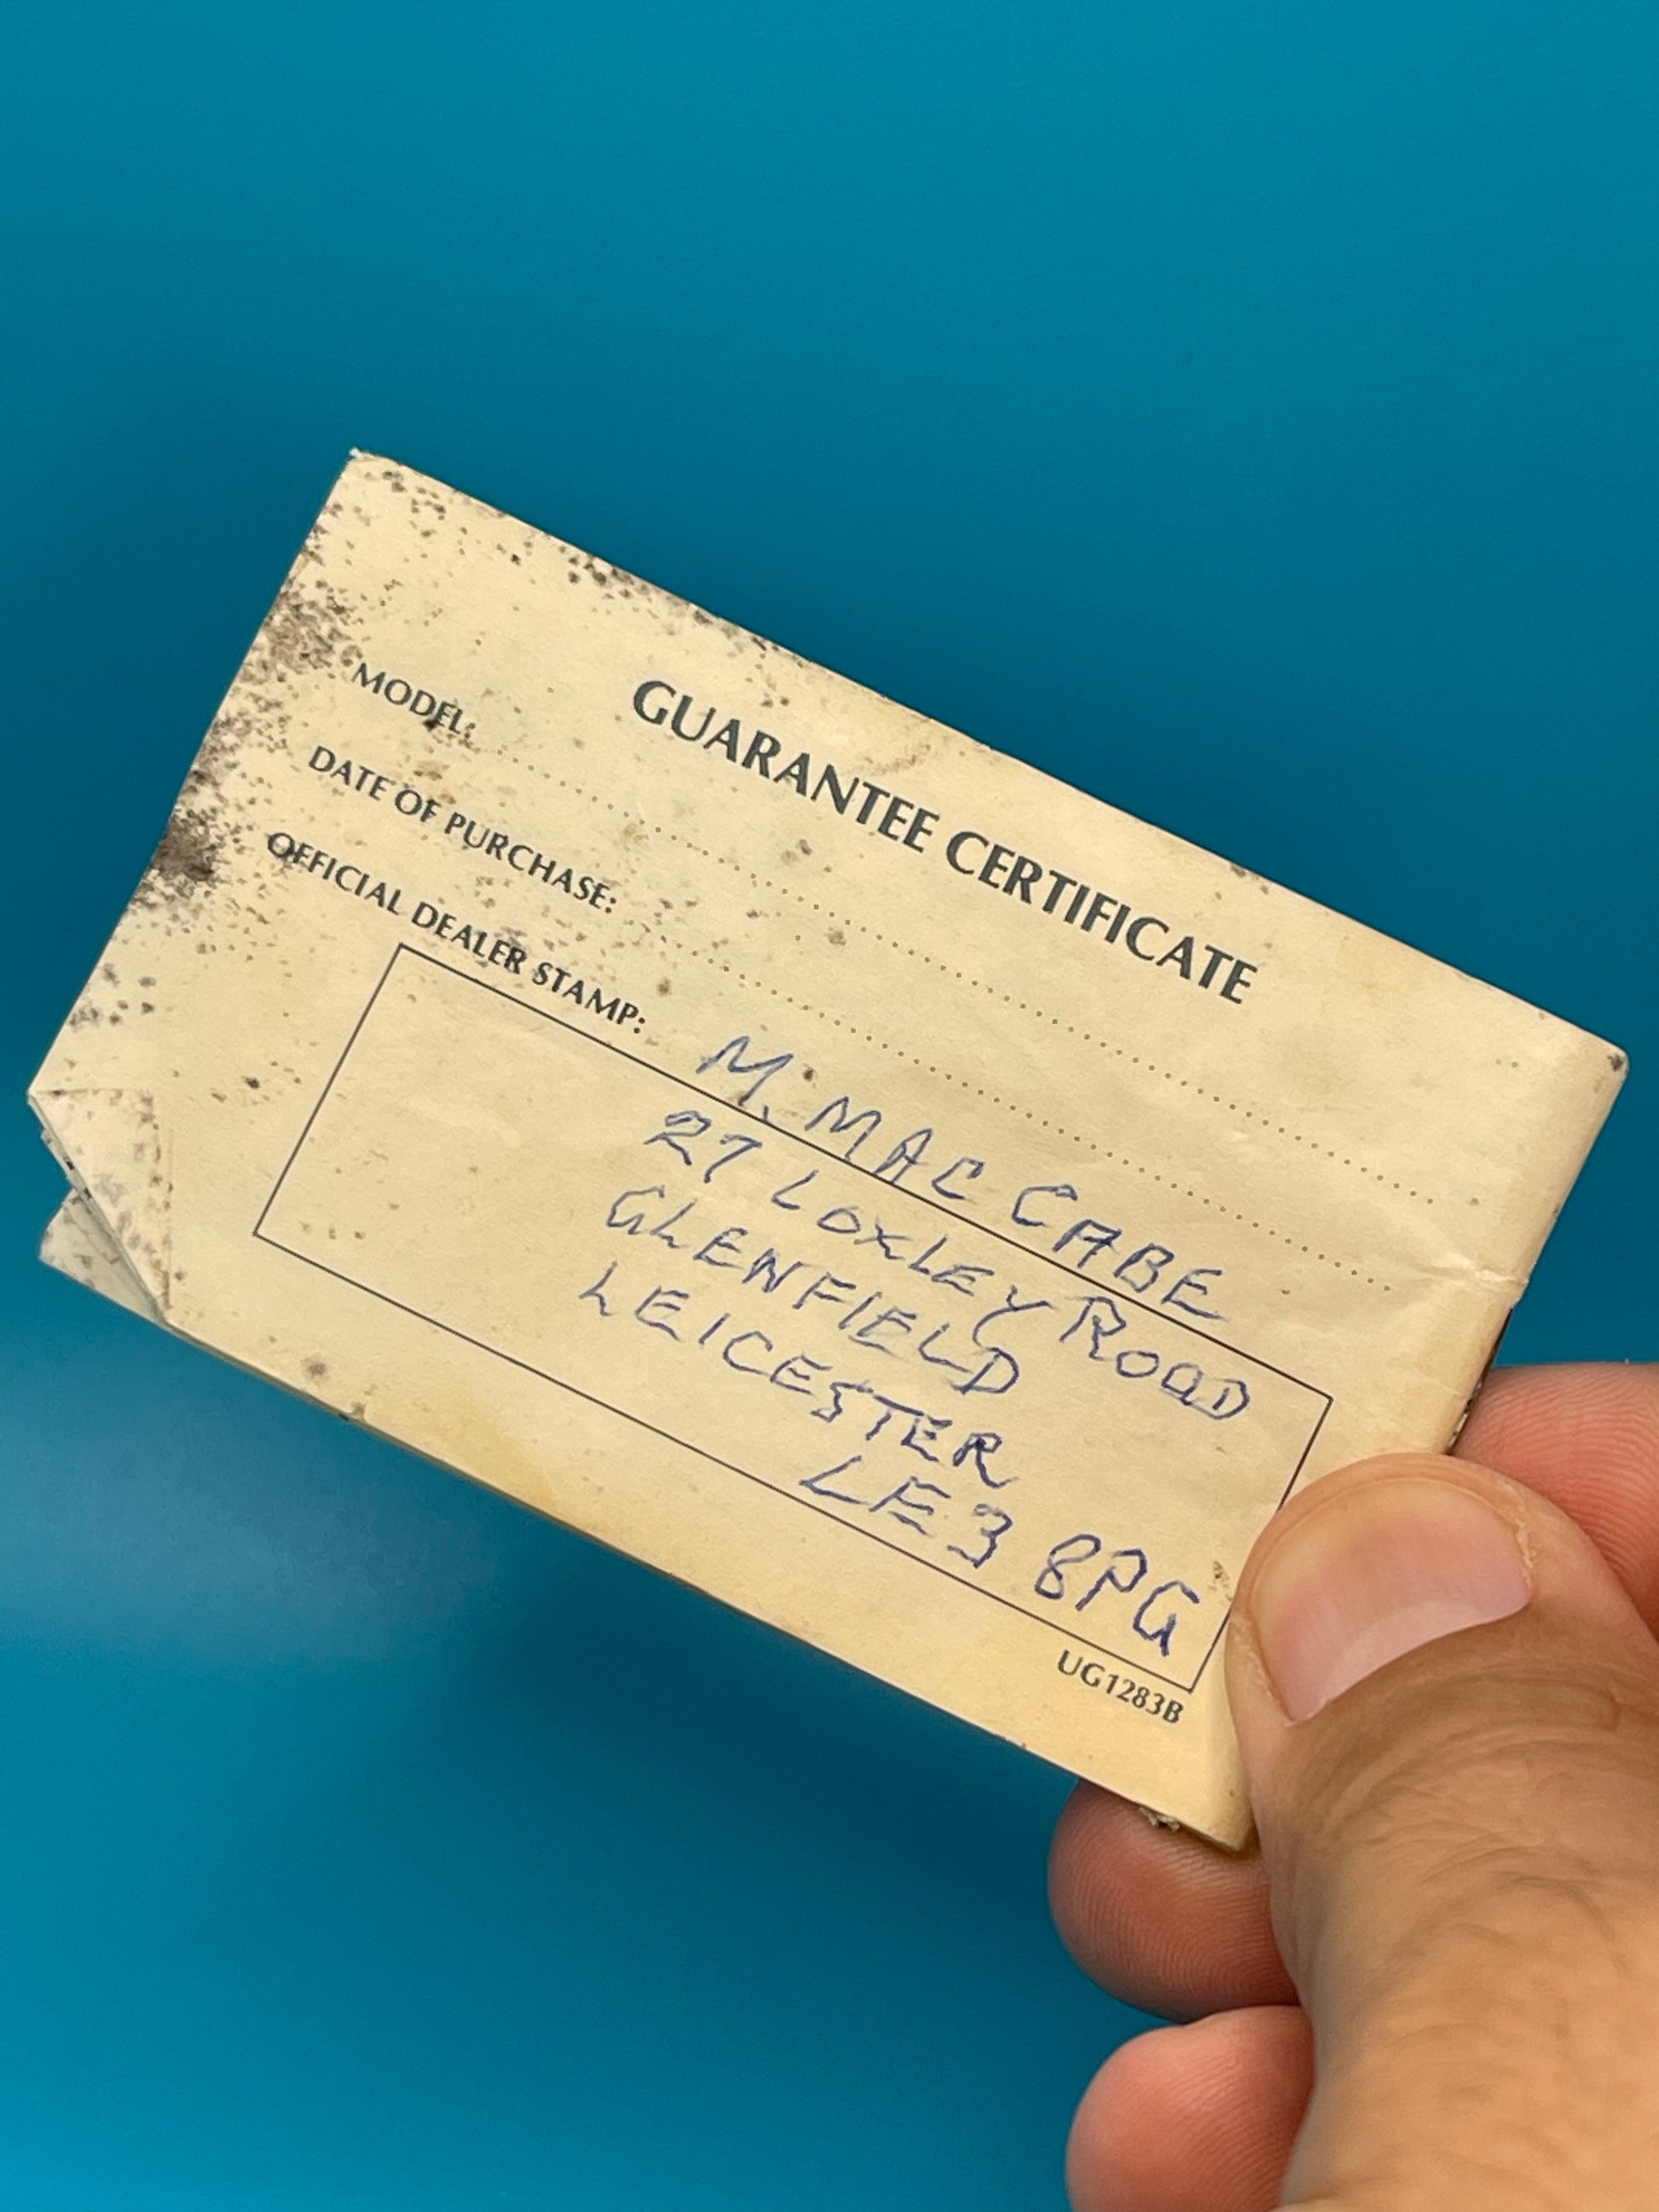 GUARANTEE CERTIFICATE
MODEL:
DATE OF PURCHASE:
OFFICIAL DEALER STAMP:
M. MAC CABE
27 LOXLEY ROAD
GLENFIELD
LEICESTER
LE3 8PG
UG1283B